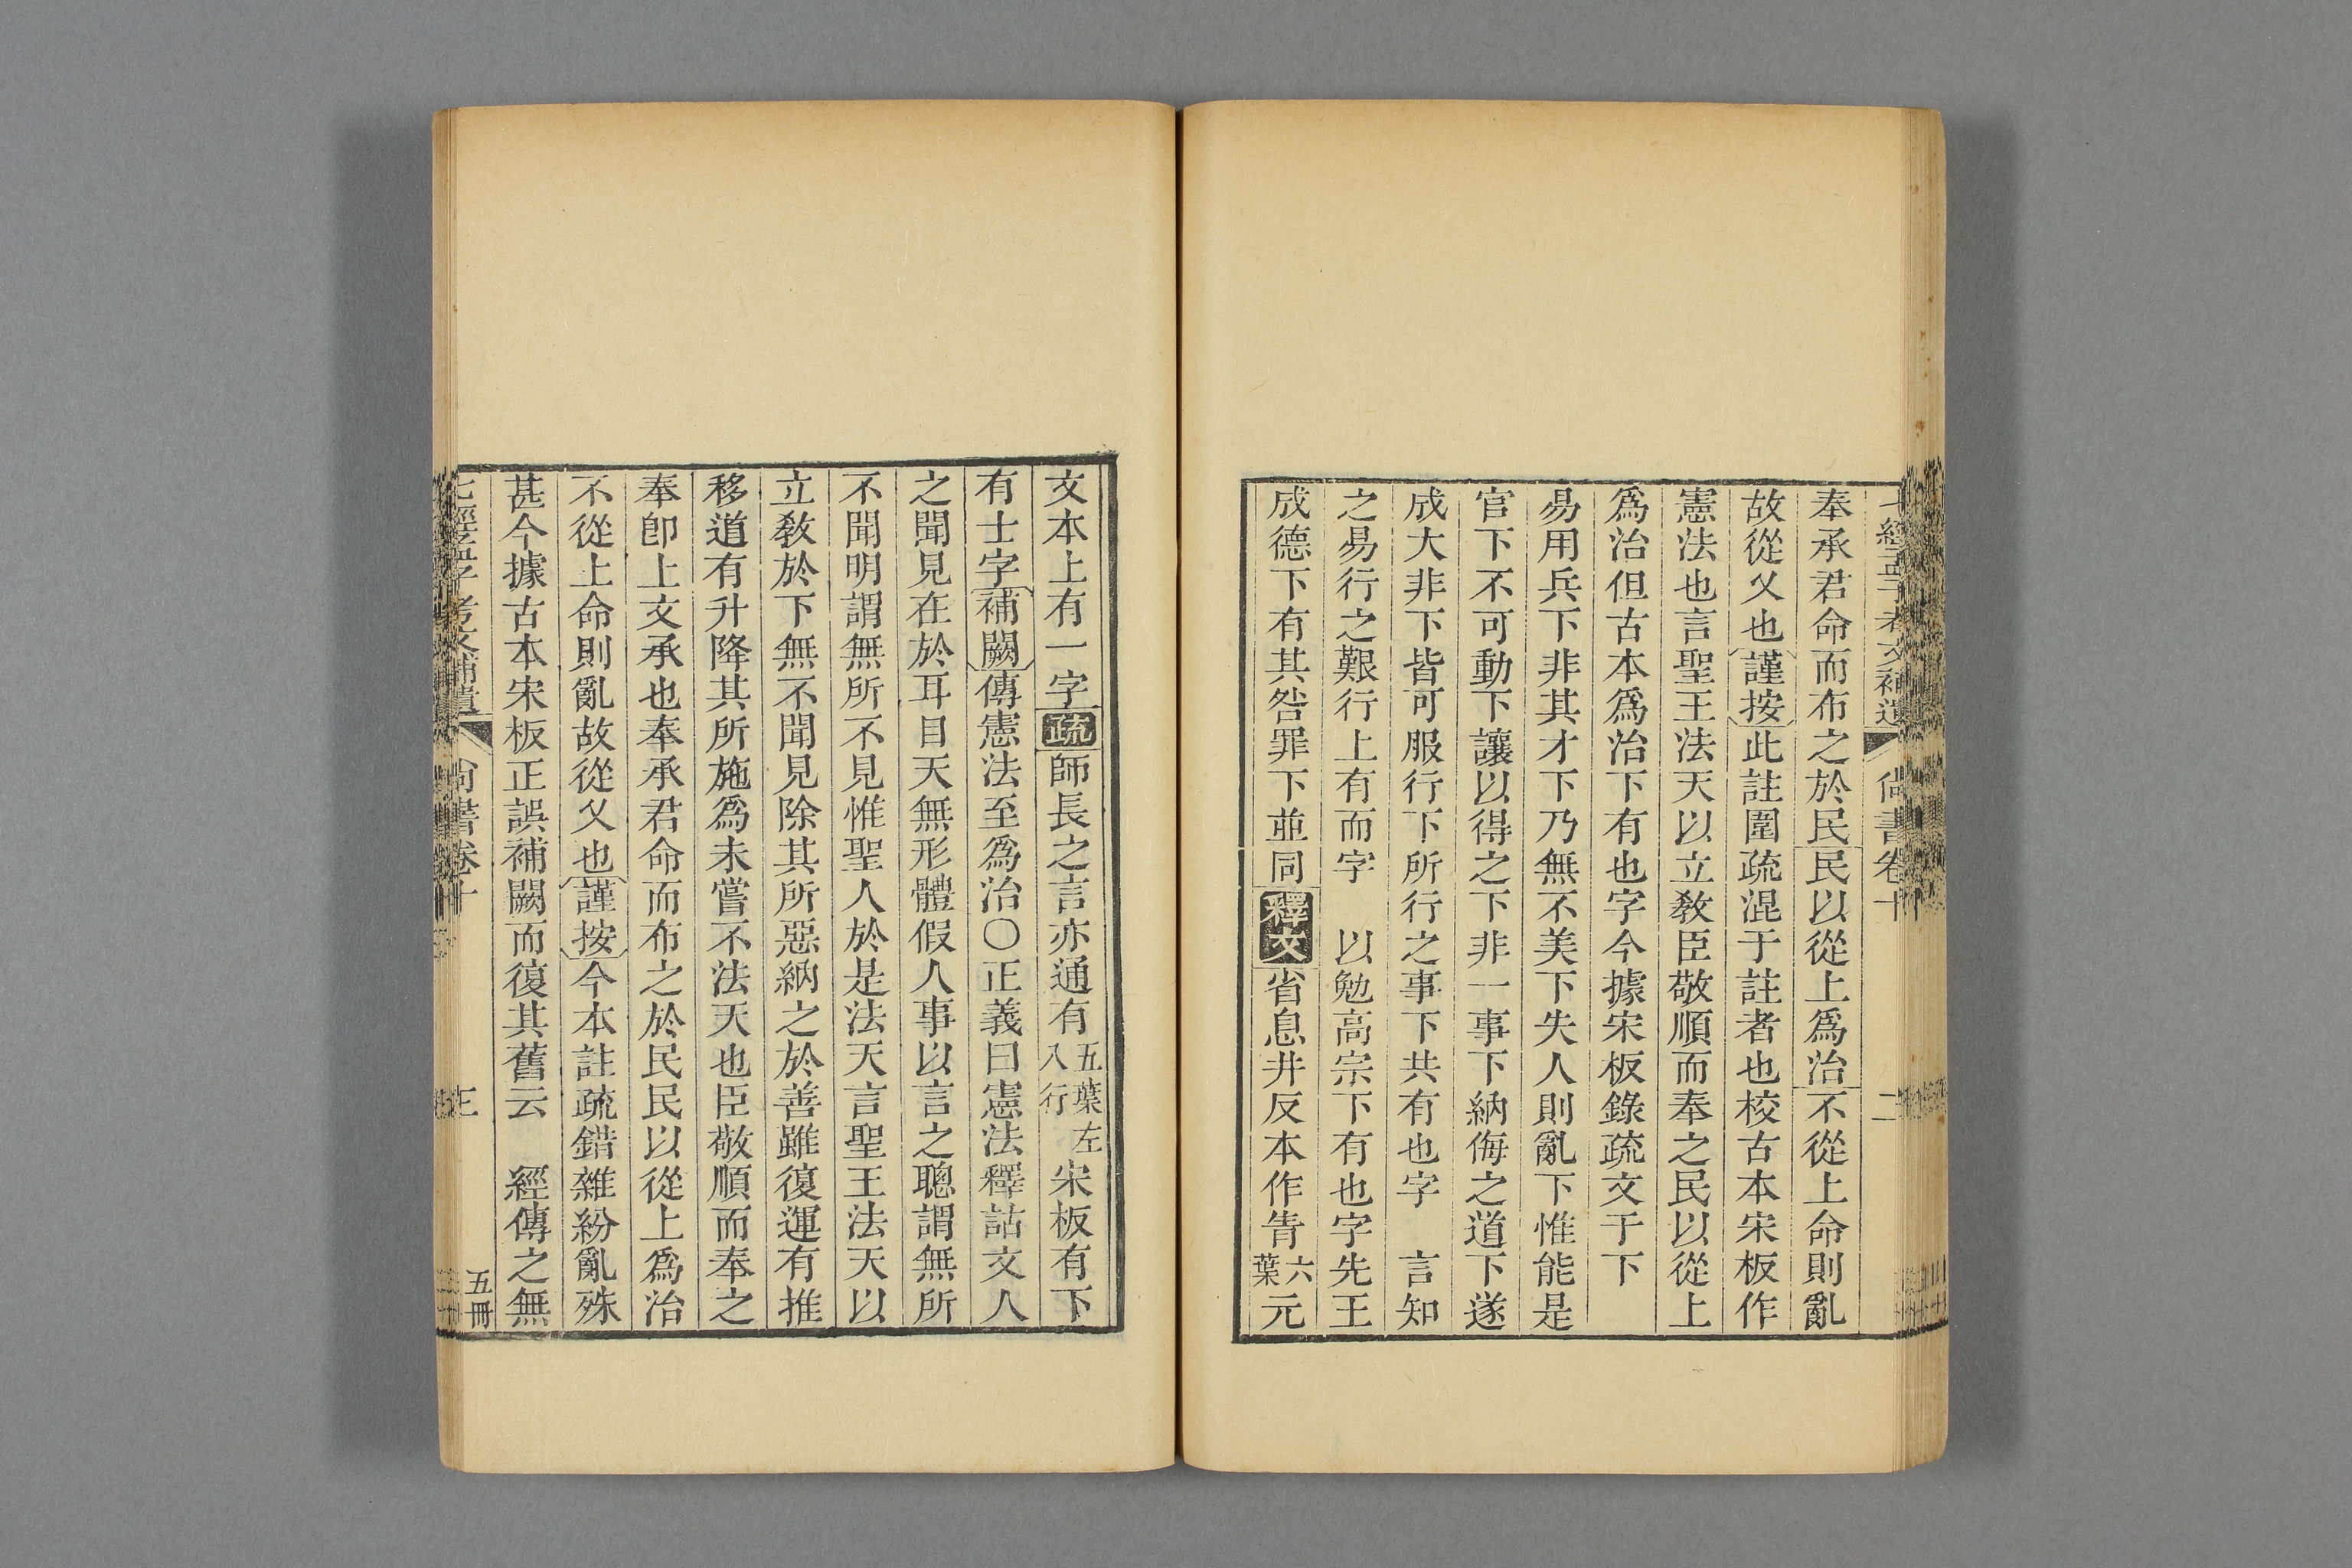 七經孟子考文補遺 尚書卷十 二
奉承君命而布之於民民以從上爲治不從上命則亂
故從乂也謹按此註圍疏混于註者也校古本宋板作
憲法也言聖王法天以立敎臣敬順而奉之民以從上
爲治但古本爲治下有也字今據宋板錄疏文于下
易用兵下非其才下乃無不美下失人則亂下惟能是
官下不可動下讓以得之下非一事下納侮之道下遂
成大非下皆可服行下所行之事下共有也字 言知
之易行之艱行上有而字 以勉高宗下有也字先王
成德下有其咎罪下並同釋文省息井反本作眚六葉元
文本上有一字疏師長之言亦通有五葉左八行宋板有下
有士字補闕傳憲法至爲治○正義曰憲法釋詁文人
之聞見在於耳目天無形體假人事以言之聰謂無所
不聞明謂無所不見惟聖人於是法天言聖王法天以
立敎於下無不聞見除其所惡納之於善雖復運有推
移道有升降其所施爲未嘗不法天也臣敬順而奉之
奉卽上文承也奉承君命而布之於民民以從上爲治
不從上命則亂故從乂也謹按今本註疏錯雜紛亂殊
甚今據古本宋板正誤補闕而復其舊云 經傳之無
七經孟子考文補遺 尚書卷十 三 五冊